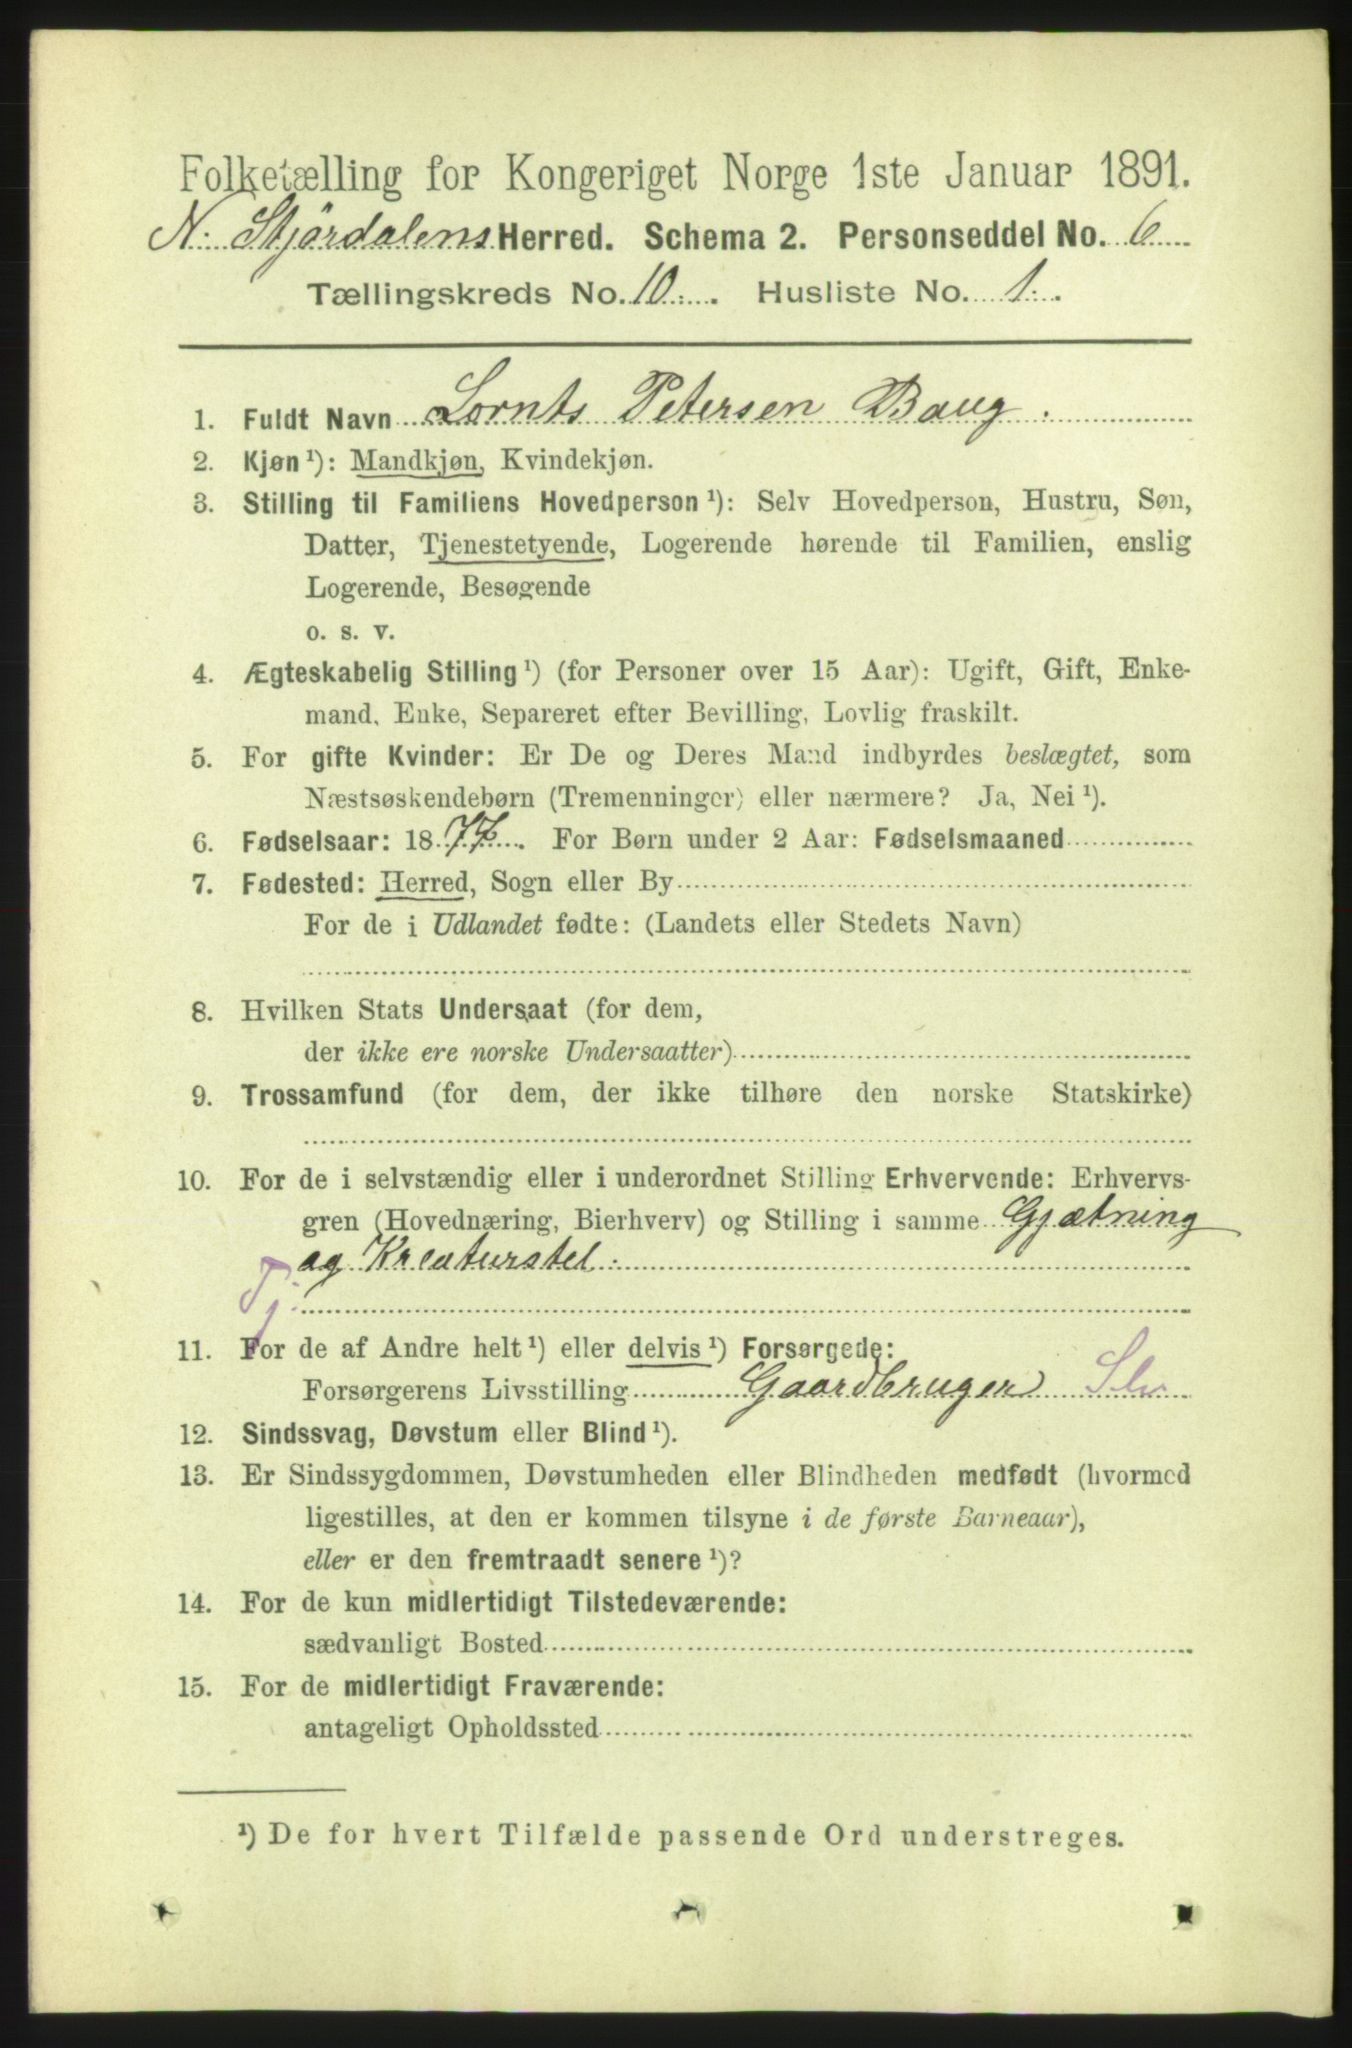 Folketælling for Kongeriget Norge 1ste Januar 1891.
N. Stjördalens Herred. Schema 2. Personseddel No. 6
Tællingskreds No. 10. Husliste No. 1.
1. Fuldt Navn Lornts Petersen Baug.
2. Kjøn ¹): Mandkjøn, Kvindekjøn.
3. Stilling til Familiens Hovedperson ¹): Selv Hovedperson, Hustru, Søn,
Datter, Tjenestetyende, Logerende hørende til Familien, enslig
Logerende, Besøgende
o. s. v.
4. Ægteskabelig Stilling ¹) (for Personer over 15 Aar): Ugift, Gift, Enke-
mand, Enke, Separeret efter Bevilling, Lovlig fraskilt.
5. For gifte Kvinder: Er De og Deres Mand indbyrdes beslægtet, som
Næstsøskendebørn (Tremenninger) eller nærmere? Ja, Nei ¹).
6. Fødselsaar: 1877. For Børn under 2 Aar: Fødselsmaaned
7. Fødested: Herred, Sogn eller By
For de i Udlandet fødte: (Landets eller Stedets Navn)
8. Hvilken Stats Undersaat (for dem,
der ikke ere norske Undersaatter)
9. Trossamfund (for dem, der ikke tilhøre den norske Statskirke)
10. For de i selvstændig eller i underordnet Stilling Erhvervende: Erhvervs-
gren (Hovednæring, Bierhverv) og Stilling i samme Gjætning
og Kreaturstel.
Tj.
11. For de af Andre helt ¹) eller delvis ¹) Forsørgede:
Forsørgerens Livsstilling Gaardbruger
12. Sindssvag, Døvstum eller Blind ¹).
13. Er Sindssygdommen, Døvstumheden eller Blindheden medfødt (hvormed
ligestilles, at den er kommen tilsyne i de første Barneaar),
eller er den fremtraadt senere ¹)?
14. For de kun midlertidigt Tilstedeværende:
sædvanligt Bosted
15. For de midlertidigt Fraværende:
antageligt Opholdssted
¹) De for hvert Tilfælde passende Ord understreges.